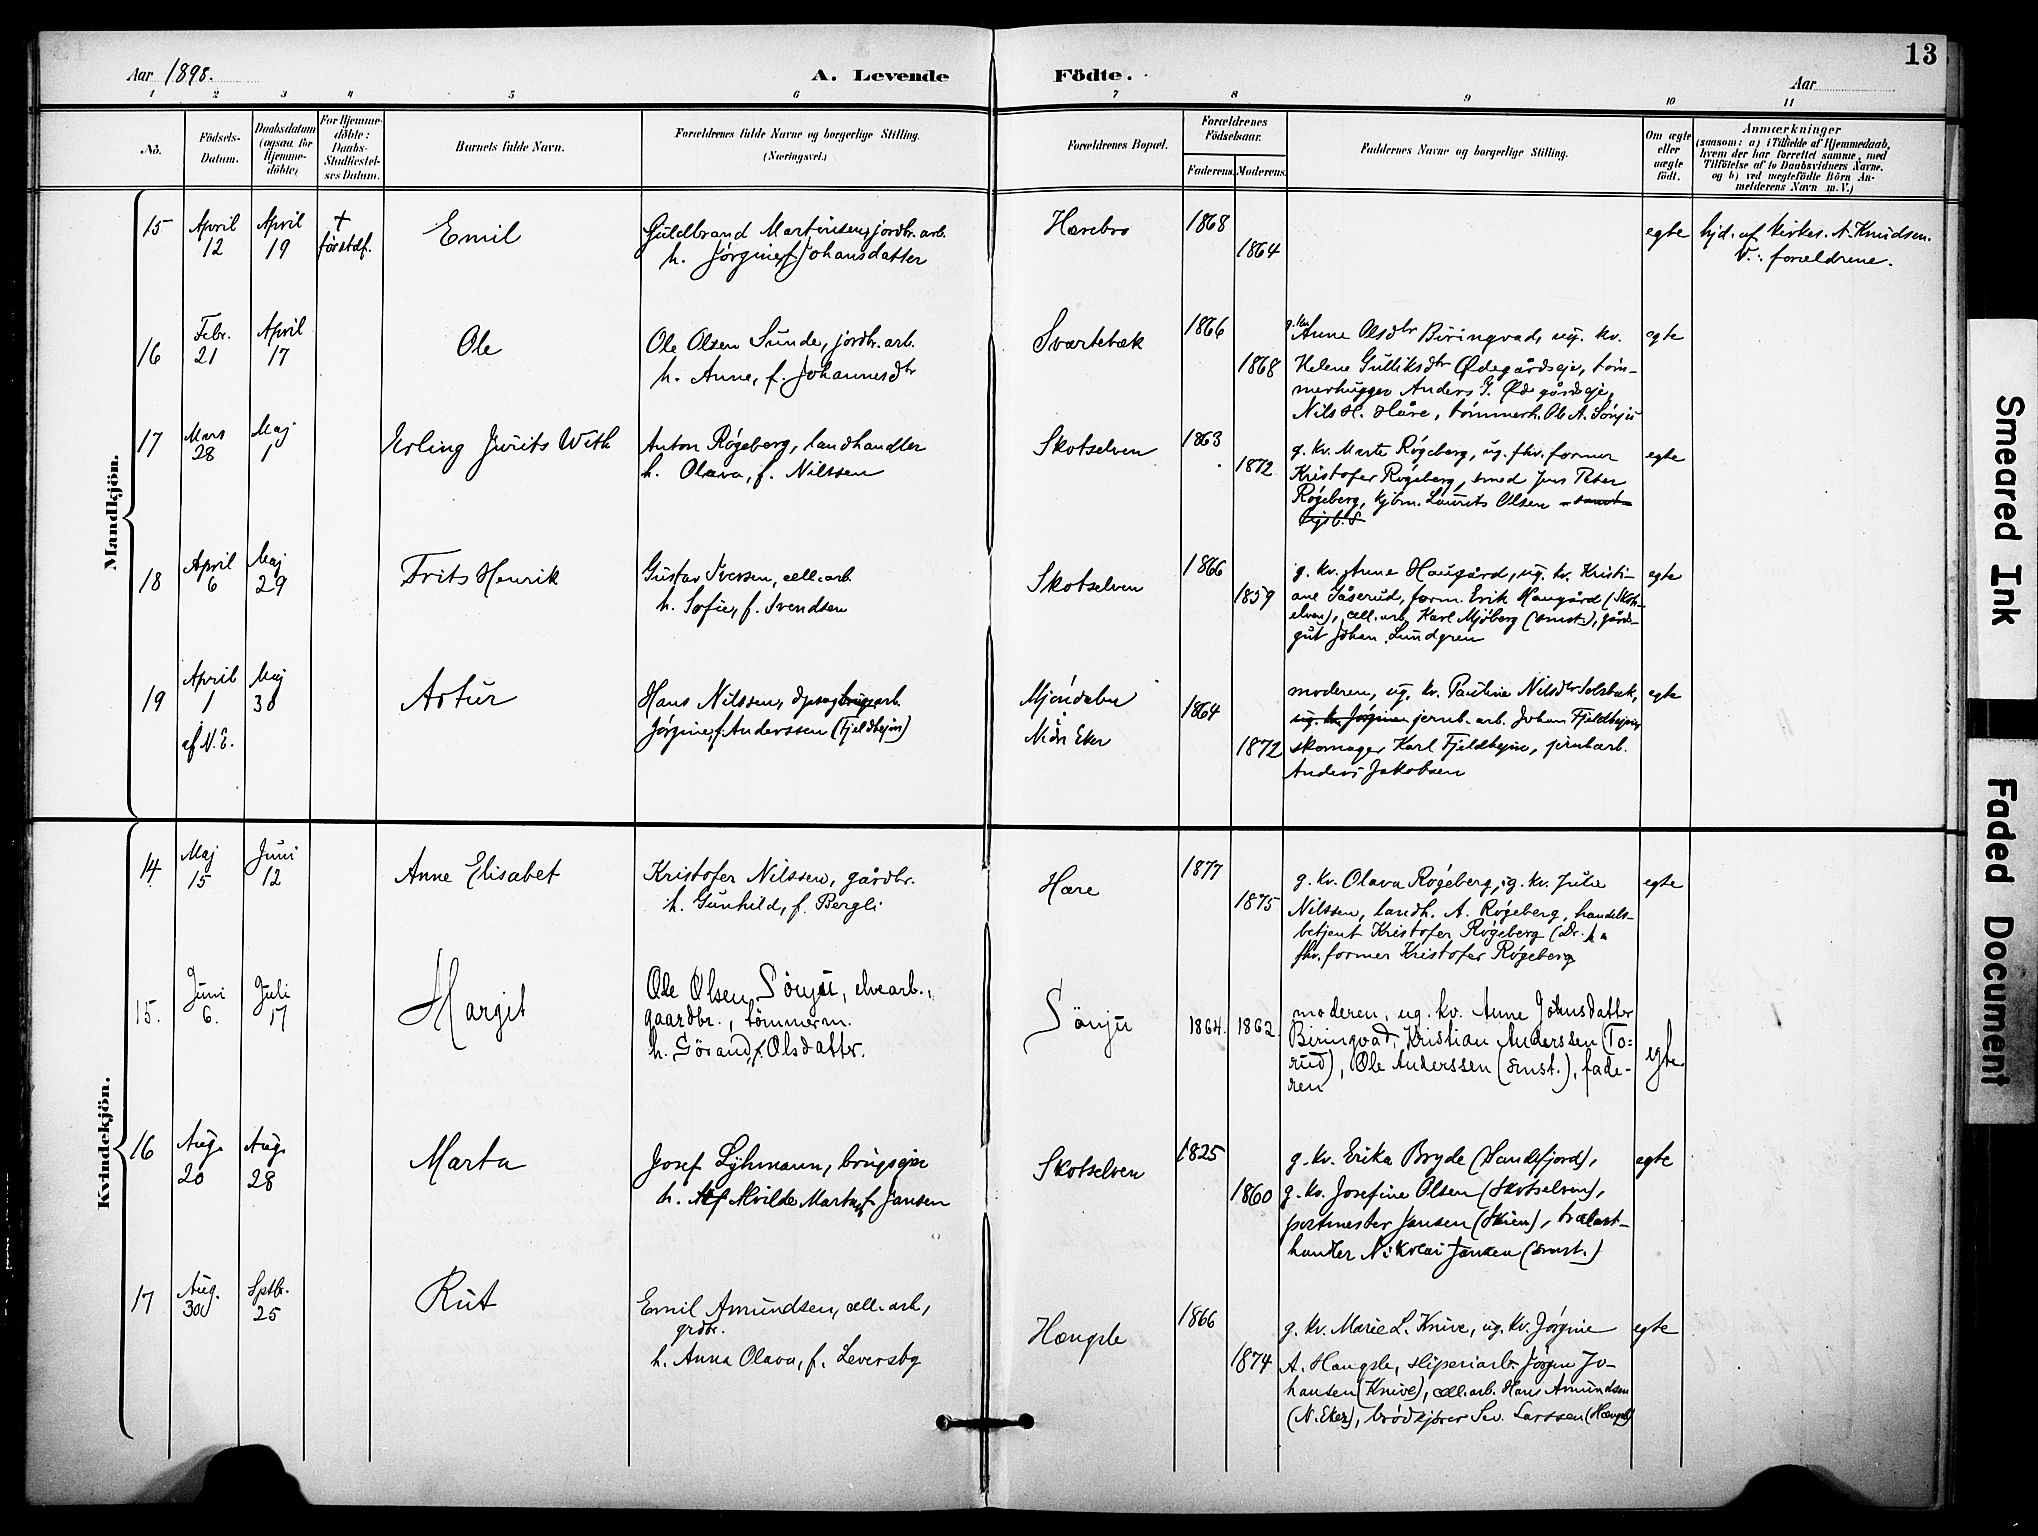 13
Aar 1898.
A. Levende Födte.
Aar
1 2 3 4 5 6 7 8 9 10 11
No.
Födsels-
Datum.
Daabsdatum
(ogsaa for
Hjemme-
döbte)
For Hjemme-
döbte:
Daabs-
Stadfæstel-
ses Datum.
Barnets fulde Navn.
Forældrenes fulde Navne og borgerlige Stilling.
(Næringsvei.)
Forældrenes Bopæl.
Forældrenes
Födselsaar.
Faderens. Moderens.
Faddernes Navne og borgerlige Stilling.
Om ægte
eller
uægte
födt.
Anmærkninger
(saasom: a) i Tilfælde af Hjemmedaab,
hvem der har forrettet samme, med
Tilföielse af to Daabsvidners Navne.
og b) ved uægtefödte Börn An-
melderens Navn m.V.)
Mandkjön.
15
April
12
April
19
†
før stdf.
Emil
Guldbrand Martinsen, jordbr. arb.
h. Jørgine, f. Johansdatter
Hærebro
1868
1864
egte
hjd. af kirkes. A. Knudsen.
V.: forældrene.
16
Febr.
21
April
17
Ole
Ole Olsen Sunde, jordbr. arb.
h. Anne, f. Johannesdtr
Svartebæk
1866
1868
Anne Olsdtr Biringvad, ug. kv.
Helene Gulliksdtr Ødegårdseje, tøm-
merhugger Anders G. Ødegårdseje,
Nils H. Håre, tømmerh. Ole A. Sønju
egte
17
Mars
28
Maj
1
Erling Jurits With
Anton Røgeberg, landhandler
h. Olava, f. Nilssen
Skotselven
1863
1872
g. kv. Marte Røgeberg, ug. fhv. former
Kristofer Røgeberg, smed Jens Peter
Røgeberg, kjbm. Laurits Olsen
egte
18
April
6
Maj
29
Frits Henrik
Gustav Iversen, cell. arb.
h. Sofie, f. Svendsen
Skotselven
1866
1859
g. kv. Anne Haugård, ug. kv. Kristi-
ane Såserud, form. Erik Haugård (Skots-
elven), cell. arb. Karl Mjøberg (smst.), gårds-
gut Johan Lundgren
egte
19
April
1
af N. E.
Maj
30
Artur
Hans Nilssen, arb.
Jørgine, f. Anderssen (Fjeldhejm)
Mjøndalen
Nedr Eker
1864
1872
moderen, ug. kv. Pauline Nilsdtr Solsbæk,
ug. kv. Jørgine jernb. arb. Johan Fjeldhejm,
skomager Karl Fjeldhejm, jernbarb.
Anders Jakobsen
egte
Kvindekjön.
14
Maj
15
Juni
12
Anne Elisabet
Kristofer Nilssen, gårdbr.
h. Gunhild, f. Bergli
Hære
1877
1875
g. kv. Olava Røgeberg, ig. kv. Julie
Nilssen, landh. A. Røgeberg, handels-
betjent Kristofer Røgeberg (Dr.)
fhv. former Kristofer Røgeberg
egte
15.
Juni
6.
Juli
17
Margit
Ole Olsen Sönju, elvearb.,
gaardbr., tømmerm.
h. Görand, f. Olsdattr.
Sönju
1864. 1862.
moderen, ug. kv. Anne Johnsdatter
Biringvad, Kristian Anderssen (To-
rud), Ole Anderssen (smst.), fade-
ren
egte
16
Aug.
20
Aug.
28
Marta
Josef Lyhmann, brugsejer
h. Alvilde Marta, f. Jansen
Skotselven
1825
1860
g. kv. Erika Bryde (Sandefjord),
g. kv. Josefine Olsen (Skotselven),
postmester Jansen (Skien), trælast-
handler Nikolai Jansen (smst.)
egte
17
Aug.
30
Sptbr.
25
Rut
Emil Amundsen, cell. arb.,
grdbr.
h. Anna Olava, f. Leversby
Hængsle
1866
1874
g. kv. Marie L. Knive, ug. kv. Jørgine
A. Hængsle, sliperiarb. Jørgen Jo-
hansen (Knive), cell. arb. Hans Amundsen
(N. Eker), brødkjører Sev. Larssen (Hængsle)
egte
Smeared Ink
Faded Document